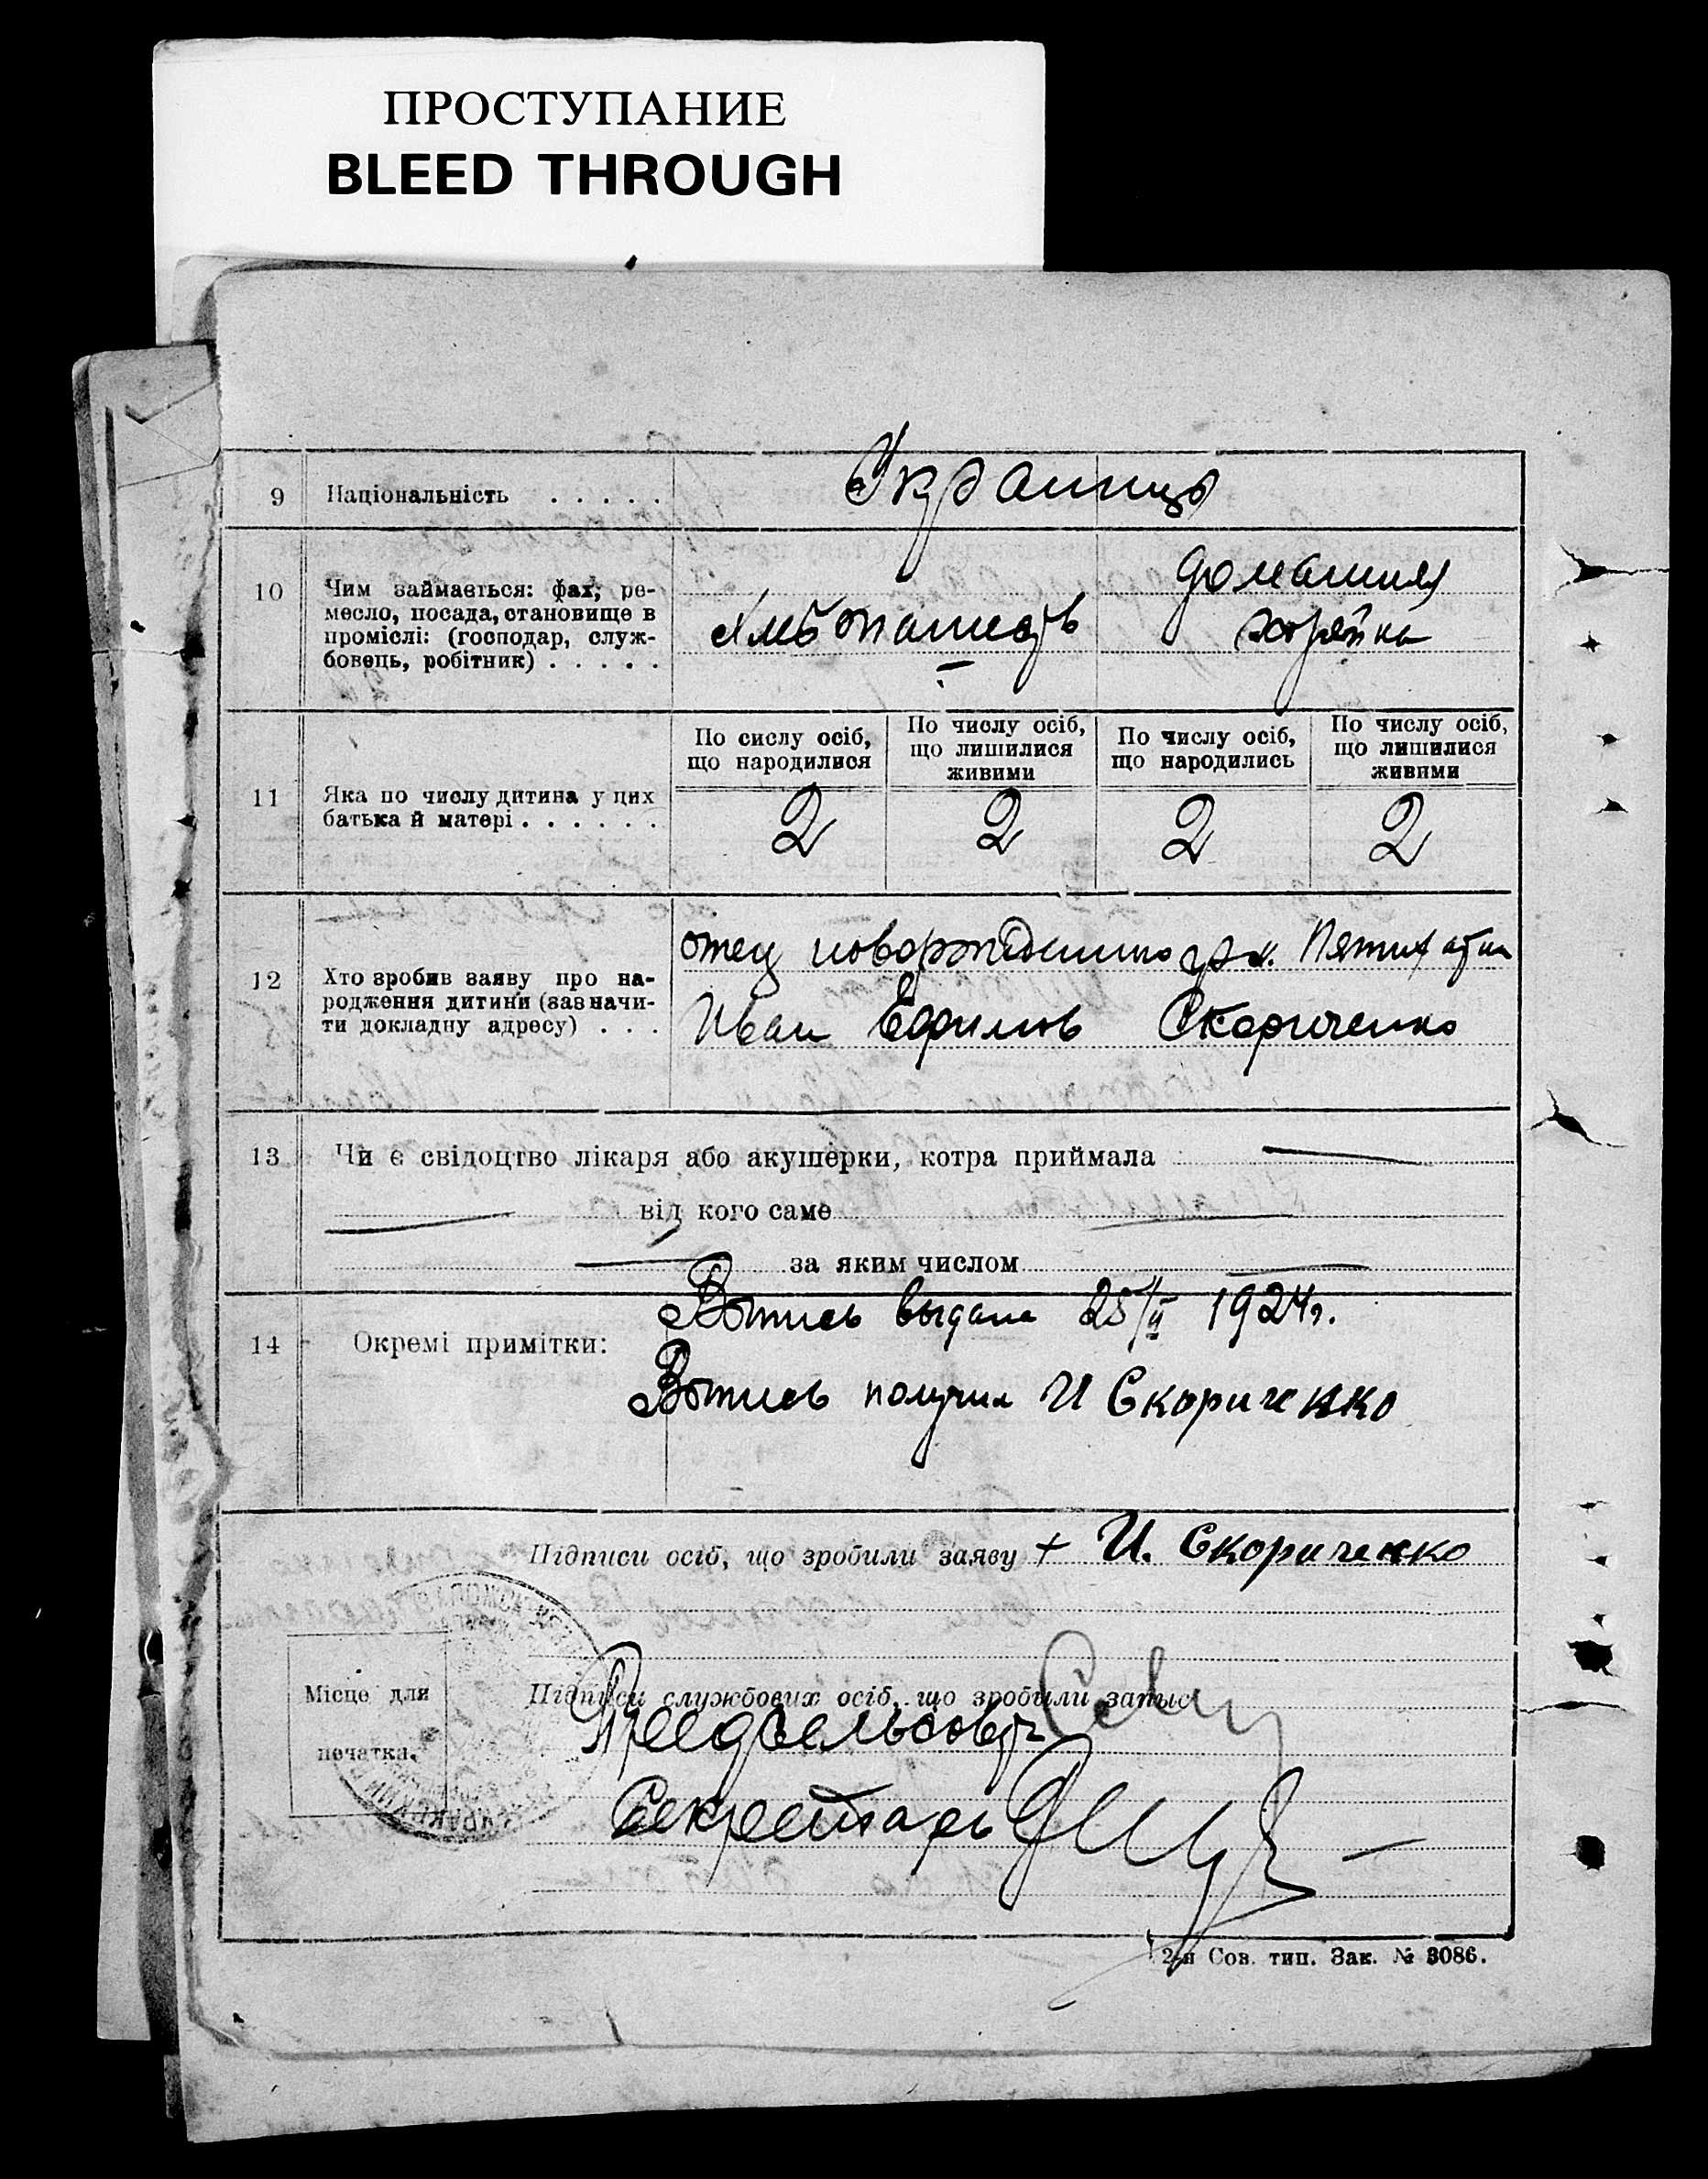 ПРОСТУПАНИЕ
BLEED THROUGH
9 Національність . . . . .
Украинцы
10 Чим займається: фах, ре-
месло, посада, становище в
проміслі: (господар, служ-
бовець, робітник) . . . . .
Хлебопашець
домашняя
хозяйка
11 Яка по числу дитина у цих
батька й матері . . . . . .
По сислу осіб,
що народилися
По числу осіб,
що лишилися
живими
По числу осіб,
що народились
По числу осіб,
що лишилися
живими
2 2 2 2
12 Хто зробив заяву про на-
родження дитини (зазначи-
ти докладну адресу) . . .
отец новорожденного
Иван Ефимов Скориченко
13 Чи є свідоцтво лікаря або акушерки, котра приймала
від кого саме
за яким числом
14 Окремі примітки:
Выпись выдана 25/II 1924г.
Выпись получил И Скориченко
Підписи осіб, що зробили заяву + И. Скориченко
Місце для
печатки.
Підписи службових осіб, що зробили запис
Предсельсовета
Секретарь
2-я Сов. тип. Зак. № 3086.